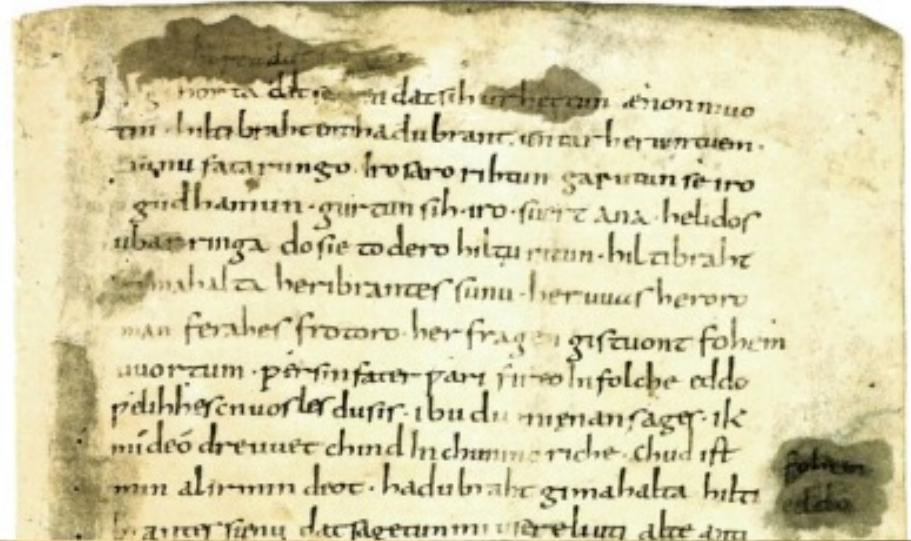 gihorta dat seggen dat sih urhettun ænon muo
tin · hiltibraht enti hadubrant · untar heriun tuem ·
sunu fatarungo · iro saro rihtun garutun se iro
gudhamun · gurtun sih · iro · suert ana · helidos
ubar ringa do sie to dero hiltu ritun · hiltibraht
gimahalta heribrantes sunu · her uuas heroro
man ferahes frotoro · her fragen gistuont fohem
uuortum · ƿer sin fater ƿari fireo In folche eddo
ƿelihhes cnuosles du sis · ibu du mi enan sages · ik
mi de o dre uuet chind In chunincriche · chud ist
min al irmin deot · hadubraht gimahalta hilti
brantes sunu dat sagetun mi usere liuti alte anti
fohem
eddo